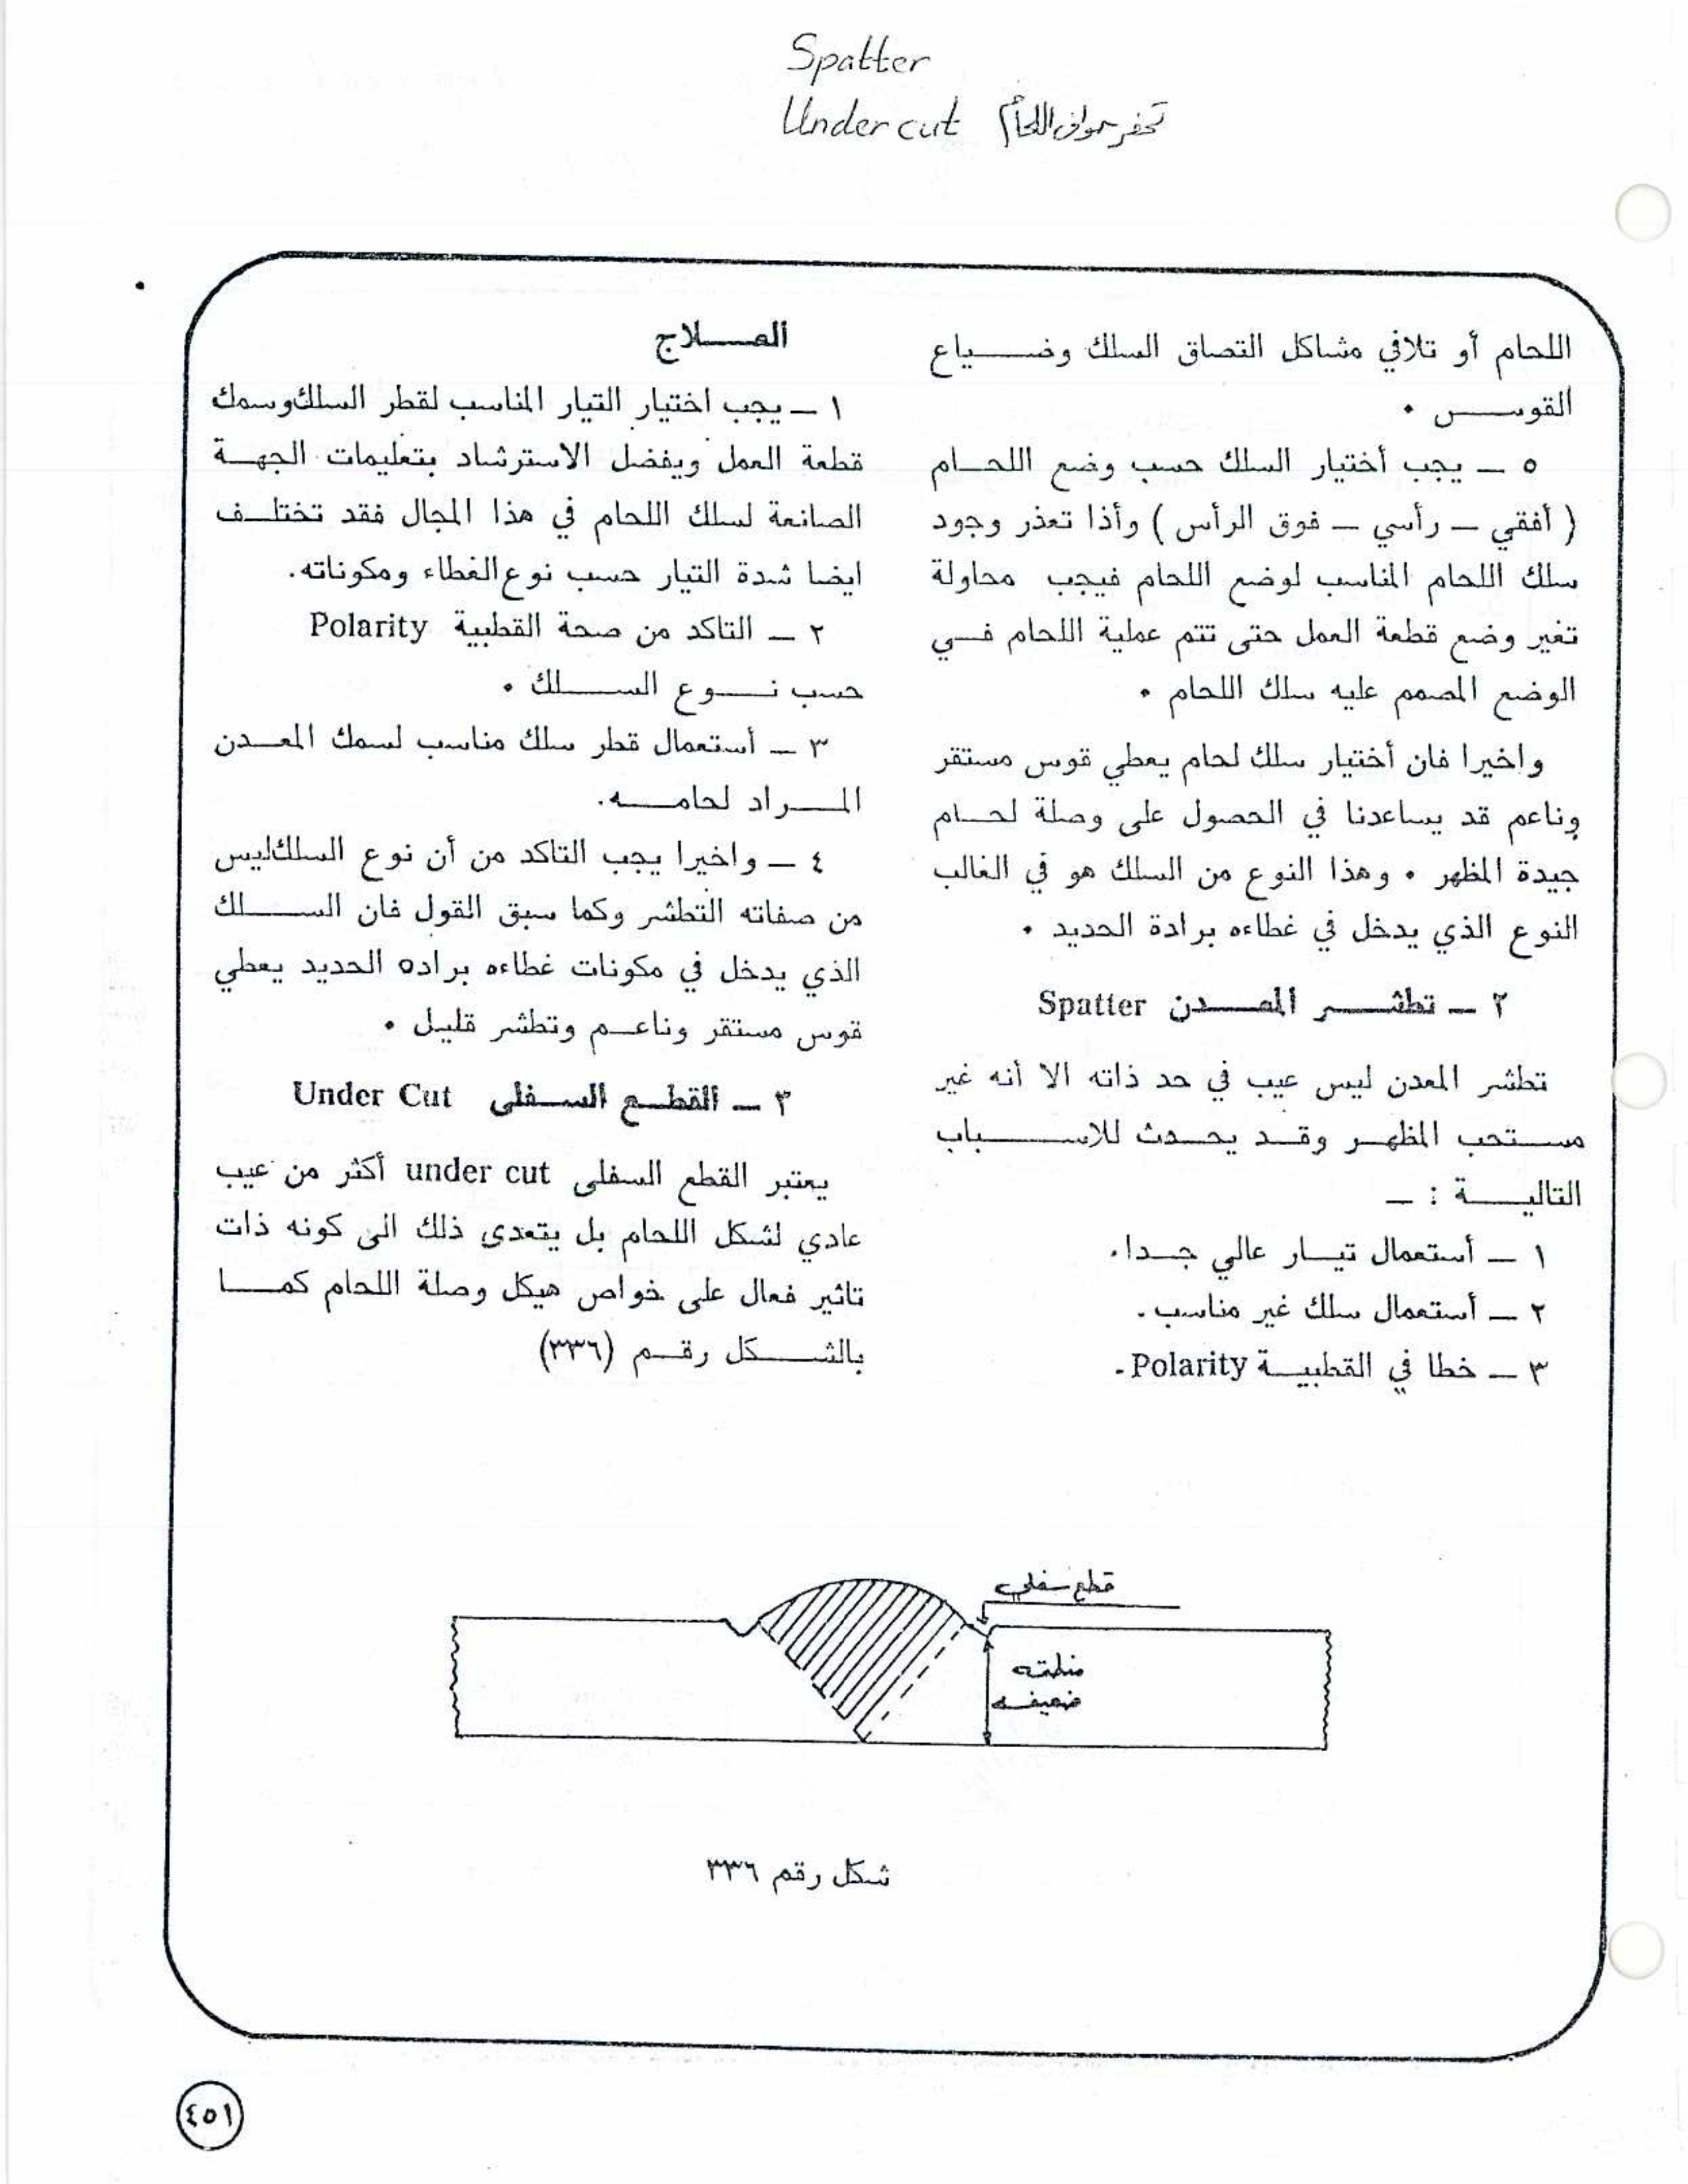 Spatter
Under cut تحفر حواف اللحام
اللحام أو تلافي مشاكل التصاق السلك وضياع
القوس .
٥ ـ يجب أختيار السلك حسب وضع اللحام
( أفقي ـ رأسي ـ فوق الرأس ) وأذا تعذر وجود
سلك اللحام المناسب لوضع اللحام فيجب محاولة
تغير وضع قطعة العمل حتى تتم عملية اللحام في
الوضع المصمم عليه سلك اللحام .
واخيرا فان أختيار سلك لحام يعطي قوس مستقر
وناعم قد يساعدنا في الحصول على وصلة لحام
جيدة المظهر . وهذا النوع من السلك هو في الغالب
النوع الذي يدخل في غطاءه برادة الحديد .
٢ ـ تطشر المعدن Spatter
تطشر المعدن ليس عيب في حد ذاته الا أنه غير
مستحب المظهر وقد يحدث للاسباب
التالية : ـ
١ ـ أستعمال تيار عالي جدا.
٢ ـ أستعمال سلك غير مناسب.
٣ ـ خطا في القطبية Polarity.
العلاج
١ ـ يجب اختيار التيار المناسب لقطر السلك وسمك
قطعة العمل ويفضل الاسترشاد بتعليمات الجهة
الصانعة لسلك اللحام في هذا المجال فقد تختلف
ايضا شدة التيار حسب نوع الغطاء ومكوناته.
٢ ـ التاكد من صحة القطبية Polarity
حسب نوع السلك .
٣ ـ أستعمال قطر سلك مناسب لسمك المعدن
المراد لحامه.
٤ ـ واخيرا يجب التاكد من أن نوع السلك ليس
من صفاته التطشر وكما سبق القول فان السلك
الذي يدخل في مكونات غطاءه براده الحديد يعطي
قوس مستقر وناعم وتطشر قليل .
٣ ـ القطع السفلى Under Cut
يعتبر القطع السفلى under cut أكثر من عيب
عادي لشكل اللحام بل يتعدى ذلك الى كونه ذات
تاثير فعال على خواص هيكل وصلة اللحام كما
بالشكل رقم (٣٣٦)
قطع سفلي
منطقه
ضعيفه
شكل رقم ٣٣٦
٤٥١